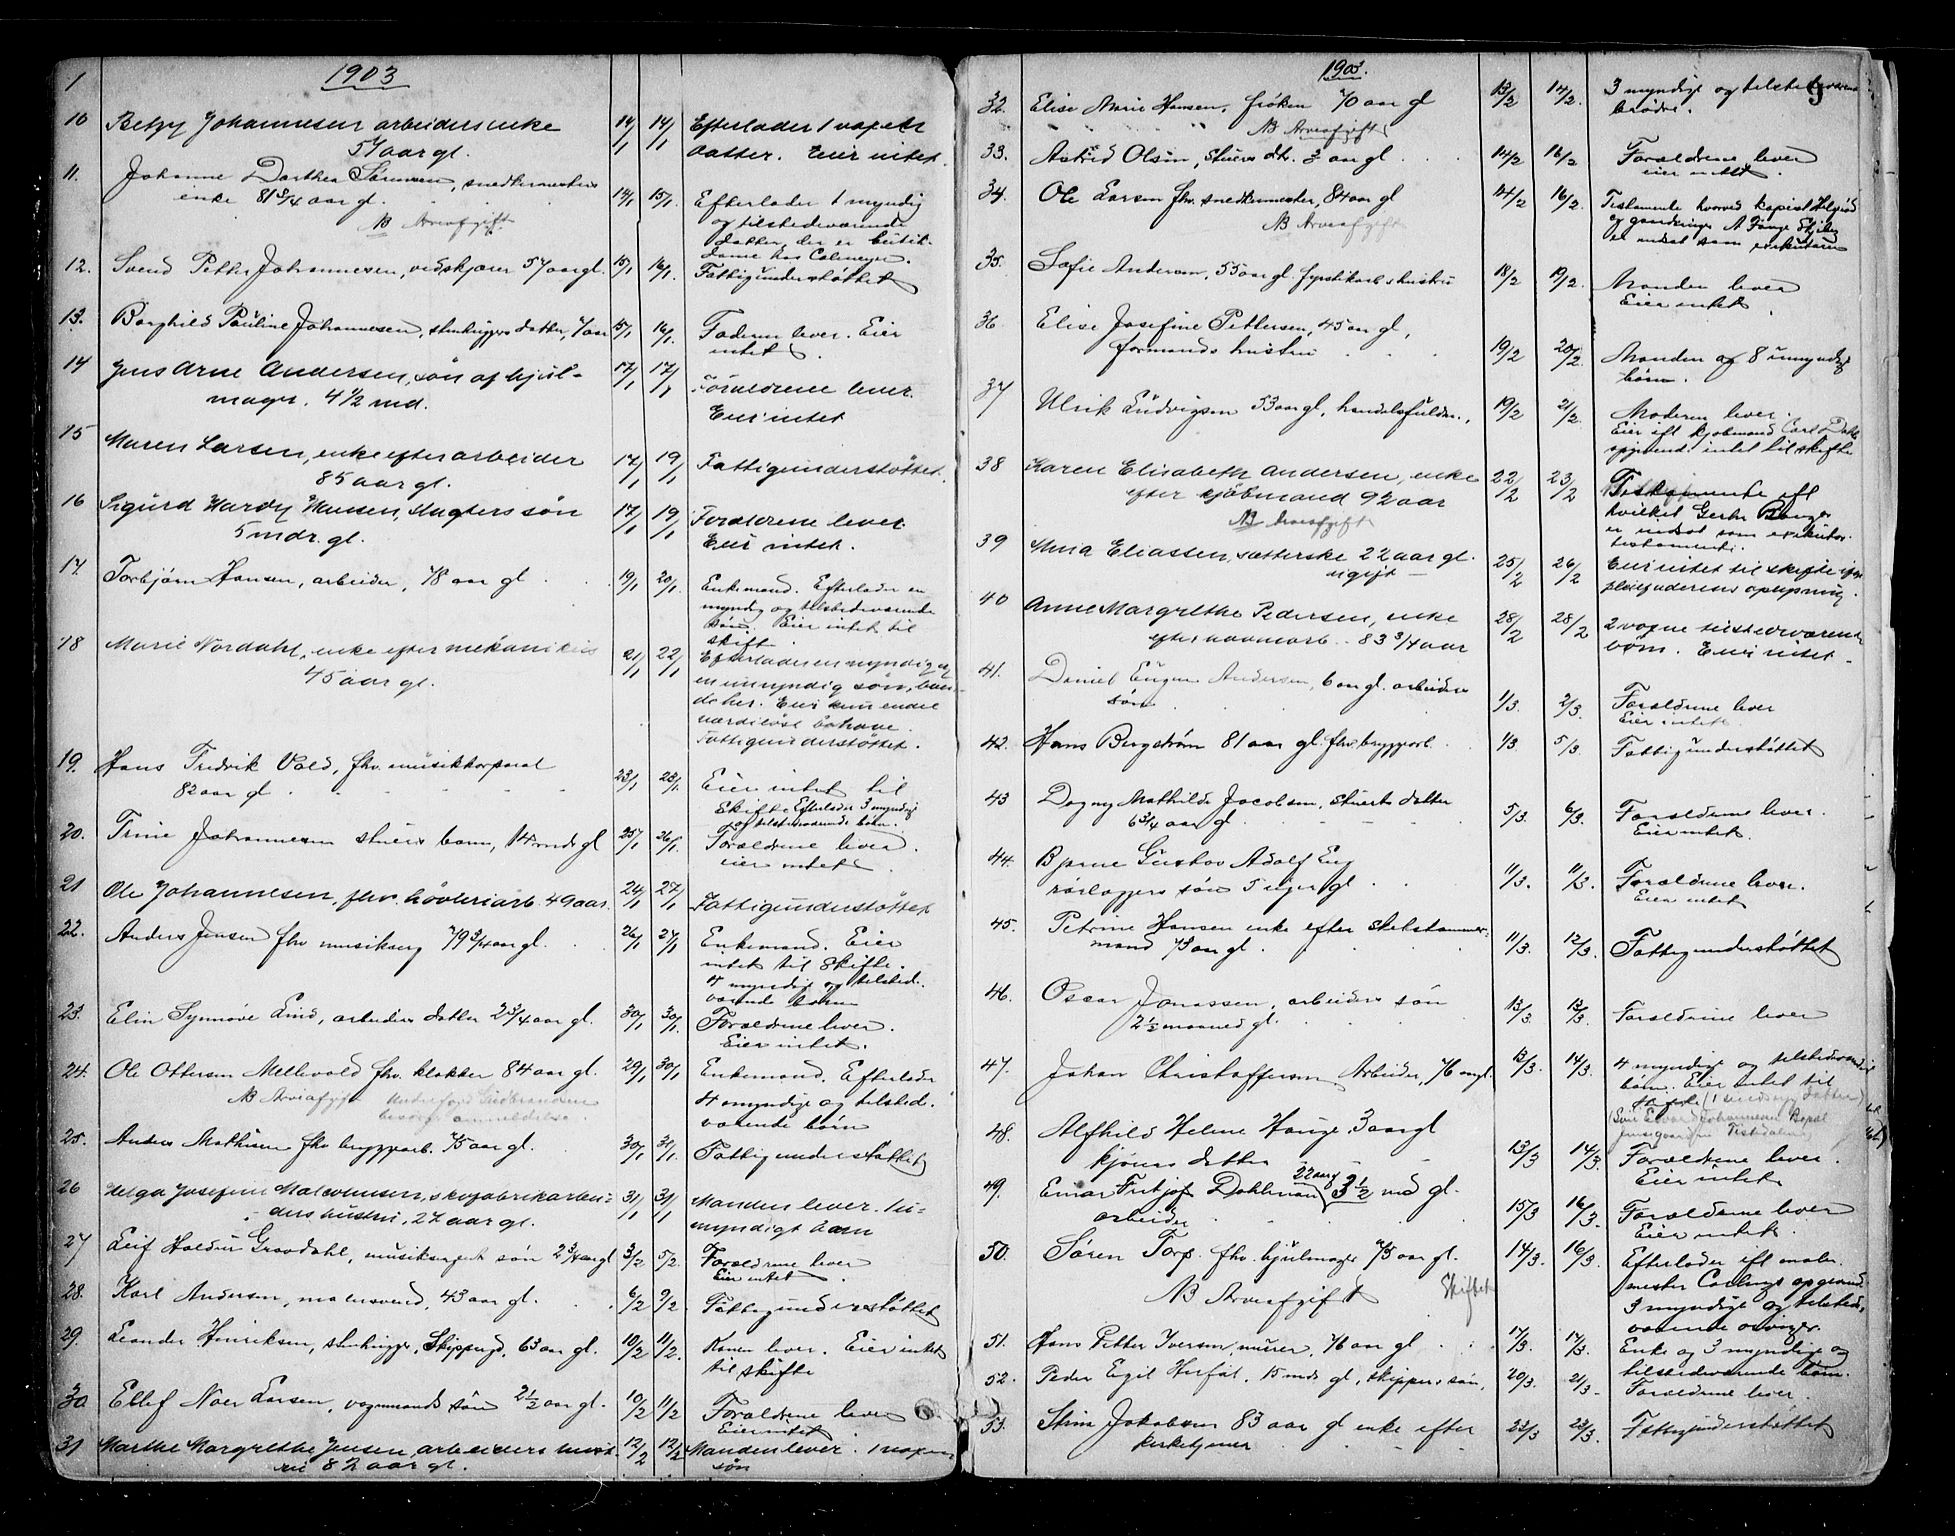 1903
10 Betzy Johannesen arbeiders enke 14/1 14/1 Efterlader 1 voxen
57 aar gl. datter. Eier intet.
11. Johanne Dorthea Sørensen, snedkermesters
enke 81 3/4 aar gl. 14/1 15/1. Efterlader 1 myndig
NB Arveafgift og tilstedeværende
datter, der er butik-
dame hos
12. Svend Petter Johannesen, vedskjærer 57 aar gl. 15/1 16/1. Fattigunderstøttet
13. Borghild Pauline Johannesen, stenhuggers datter, 7 aar 15/1 16/1. Faderen lever. Eier
intet.
14 Jens Arne Andersen, søn af hjul- 17/1 17/1 Forældrene lever.
mager. 4 1/2 md. Eier intet
15 Maren Larsen, enke efter arbeider 17/1 19/1 Fattigunderstøttet.
85 aar gl.
16 Sigurd Hardy Hansen, slagters søn 17/1 19/1 Forældrene lever
5 mdr. gl. Eier intet.
17. Torbjørn Hansen, arbeider, 78 aar gl 19/1 20/1. Enkemand. Efterlader en
myndig og tilstedeværende
søn. Eier intet til
skifte.
18 Marie Nordahl, enke efter mekanikus 21/1 22/1 Efterlader en myndig og
45 aar gl. en umyndig søn,
her. Eier kun endel
værdiløst bohave.
Fattigunderstøttet.
19. Hans Fredrik Vold, fhv. musikkorporal
82 aar gl. 23/1 23/1. Eier intet til
skifte Efterlader 3 myndig
og tilstedeværende børn.
20. Trine Johannesen stuers barn, 14 mndr gl 25/1 26/1. Forældrene lever.
Eier intet
21 Ole Johannesen, fhv. høvleriarb. 49 aar. 24/1 27/1 Fattigunderstøttet
22. Anders Jensen fhv musikserg 79 3/4 aar gl. 26/1 27/1 Enkemand. Eier
intet til skifte.
4 myndig og tilsted.
værende børn
23. Elin Synnøve Lind, arbeiders datter 2 3/4 aar gl. 30/1 30/1. Forældrene lever.
Eier intet.
24. Ole Ottersen Mellevold fhv. klokker 84 aar gl. 29/1 30/1 Enkemand. Efterlader
NB Arveafgift Gudbrandsen 4 myndige og tilsted.
besørger anmeldelse. værende børn
25. Anders Mathisen fhv bryggarb. 75 aar gl. 30/1 31/1 Fattigunderstøttet
26 Helga Josefine Malcolmsen, skofabrikarbei- 31/1 31/1 Manden lever. 1 u-
ders hustru, 27 aar gl. myndigt barn
27 Leif Haldur Gravdahl, musiksergt søn 2 3/4 aar gl 3/2 5/2. Forældrene lever
Eier intet.
28. Karl Andersen, malersvend, 43 aar gl. 6/2 9/2. Fattigunderstøttet
29. Leander Henriksen, stenhugger, Skippergd. 63 aar gl. 10/2 11/2. Konen lever. Eier intet
til skifte
30 Ellef Noer Larsen, vognmands søn 2 1/2 aar gl. 10/2 11/2 Forældrene lever
Eier intet.
31 Marthe Margrethe Jensen, arbeiders hust- 12/2 12/2 Manden lever. 1 voxen
ru 82 aar gl. søn
1903. 9
32. Elise Marie Hansen, frøken 70 aar gl 13/2 14/2. 3 myndige og tilstedeværende
NB Arveafgift brødre.
33. Astrid Olsen, stuers dtr. 3 aar gl 14/2 16/2 Forældrene lever
eier intet.
34. Ole Larsen fhv. snedkermester, 84 aar gl 14/2 16/2. Testamente hvorved kopist Helgerød
NB Arveafgift og gaardbruger A Fange
er indsat som exekutorer
35. Sofie Andersen, 55 aar gl. fyrstikarb.s hustru 18/2 19/2. Manden lever
Eier intet.
36 Elise Josefine Pettersen, 45 aar gl,
formands hustru 19/2 20/2. Manden og 8 umyndige
børn.
37 Ulrik Ludvigsen 53 aar gl, handelsfuldm., 19/2 21/2. Moderen lever.
Eier ifl kjøbmand Carl Dahls
opgivende intet til skifte
38 Karen Elisabeth Andersen, enke 22/2 23/2 Testamente ifl
efter kjøbmand 92 aar hvilket Gerhr
NB Arveafgift er indsat som exekutor
testamenti.
39 Anna Eliassen, sætterske 22 aar gl. 25/2 26/2 Eier intet til skifte ifølge
ugift pleiefaderens opgivning.
40 Anne Margrethe Pedersen, enke 28/2 28/2 2 voxne tilstedeværende
efter havnearb. 83 3/4 aar børn. Eier intet.
41. Daniel Eugen Andersen, 6 aar gl. arbeiders
søn 1/3. 2/3. Forældrene lever
Eier intet.
42. Hans Bergstrøm 81 aar gl. fhv. bryggarb. 1/3. 5/3. Fattigunderstøttet
43 Dagny Mathilde Jacobsen, stuerts datter
6 3/4 aar gl. 5/3. 6/3. Forældrene lever.
Eier intet.
44. Bjarne Gustav Adolf Eng
rørlæggers søn 5 uger gl 11/3. 11/3. Forældrene lever.
Eier intet
45. Petrine Hansen enke efter skibstømmer-
mand 73 aar gl. 11/3. 12/3. Fattigunderstøttet
46. Oscar Jonassen, arbeiders søn
2 1/2 maaned gl. 13/3. 13/3. Forældrene lever
47. Johan Christoffersen Arbeider, 76 aar gl. 13/3. 14/3. 4 myndige og tilstedeværende
børn. Eier intet til
skifte (1 datter)
Johannesen
Tistedalen
48. Alfhild Helene Hauge 3 aar gl
kjøres datter 13/3 14/3. Forældrene lever.
Eier intet
49. Einar Fritjof Dahlman 22 aar 3 1/2 md gl.
arbeider 15/3 16/3. Forældrene lever
Eier intet.
50. Søren Torp. fhv. hjulmager 75 aar gl. 14/3. 16/3. Efterlader ifl maler-
NB Arveafgift Skiftet mester Carlings opgivende
3 myndige og tilstede-
værende arvinger.
51. Hans Petter Iversen, murer, 76 aar gl 17/3. 17/3. Enke og 3 myndige og
tilstedeværende børn.
52. Peder Egil Herføl, 15 mdr gl, skippers søn, 20/3. 21/3. Forældrene lever.
53. Stine Jakobsen 83 aar gl enke efter 23/3 23/3. Fattigunderstøttet
kirketjener